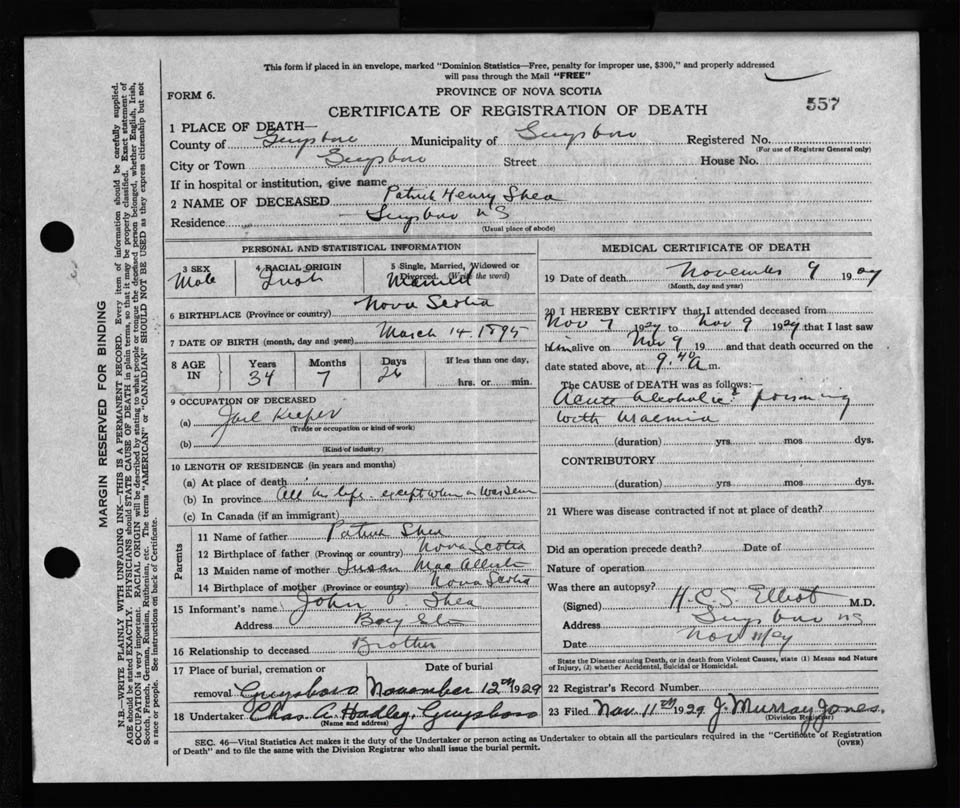 This form if placed in an envelope, marked "Dominion Statistics—Free, penalty for improper use, $300," and properly addressed
will pass through the Mail "FREE"
FORM 6.
PROVINCE OF NOVA SCOTIA
557
CERTIFICATE OF REGISTRATION OF DEATH
1 PLACE OF DEATH—
County of Guysboro Municipality of Guysboro Registered No.
(For use of Registrar General only)
City or Town Guysboro Street House No.
If in hospital or institution, give name
2 NAME OF DECEASED Patrick Henry Shea
Residence Guysboro NS
(Usual place of abode)
PERSONAL AND STATISTICAL INFORMATION
3 SEX 4 RACIAL ORIGIN 5 Single, Married, Widowed or
Divorced. (Write the word)
Male Irish Married
6 BIRTHPLACE (Province or country) Nova Scotia
7 DATE OF BIRTH (month, day and year) March 14. 1895
8 AGE IN Years Months Days If less than one day,
34 7 26 hrs. or min.
9 OCCUPATION OF DECEASED
(a) Jail Keeper
(Trade or occupation or kind of work)
(b)
(Kind of industry)
10 LENGTH OF RESIDENCE (in years and months)
(a) At place of death
(b) In province All his life except when in War
(c) In Canada (if an immigrant)
Parents
11 Name of father Patrick Shea
12 Birthplace of father (Province or country) Nova Scotia
13 Maiden name of mother Susan
14 Birthplace of mother (Province or country) Nova Scotia
15 Informant's name John Shea
Address
16 Relationship to deceased Brother
17 Place of burial, cremation or Date of burial
removal Guysboro November 12th 1929
18 Undertaker Chas. A. Hadley, Guysboro
(Name and address)
MEDICAL CERTIFICATE OF DEATH
19 Date of death November 9 1929
(Month, day and year)
20 I HEREBY CERTIFY that I attended deceased from
Nov 7 1929 to Nov 9 1929 that I last saw
him alive on Nov 9 19 and that death occurred on the
date stated above, at 9.40 A m.
The CAUSE of DEATH was as follows:—
Acute Alcoholic poisoning
with Uraemia
(duration) yrs. mos. dys.
CONTRIBUTORY
(duration) yrs. mos. dys.
21 Where was disease contracted if not at place of death?
Did an operation precede death? Date of
Nature of operation
Was there an autopsy?
(Signed) H.C.S. Elliot M.D.
Address Guysboro NS
Date Nov
State the Disease causing Death, or in death from Violent Causes, state (1) Means and Nature
of Injury, (2) whether Accidental, Suicidal or Homicidal.
22 Registrar's Record Number
23 Filed Nov. 11th 1929 J. Murray Jones.
(Division Registrar)
SEC. 46—Vital Statistics Act makes it the duty of the Undertaker or person acting as Undertaker to obtain all the particulars required in the "Certificate of Registration
of Death" and to file the same with the Division Registrar who shall issue the burial permit. (OVER)
MARGIN RESERVED FOR BINDING
N.B.—WRITE PLAINLY WITH UNFADING INK—THIS IS A PERMANENT RECORD. Every item of information should be carefully supplied.
AGE should be stated EXACTLY. PHYSICIANS should STATE CAUSE OF DEATH in plain terms, so that it may be properly classified. Exact statement of
OCCUPATION is very important. RACIAL ORIGIN will be described by stating to what people or tongue the deceased person belonged, whether English, Irish,
Scotch, French, German, Russian, Ruthenian, etc. The terms "AMERICAN" or "CANADIAN" SHOULD NOT BE USED as they express citizenship but not
a race or people. See instructions on back of Certificate.